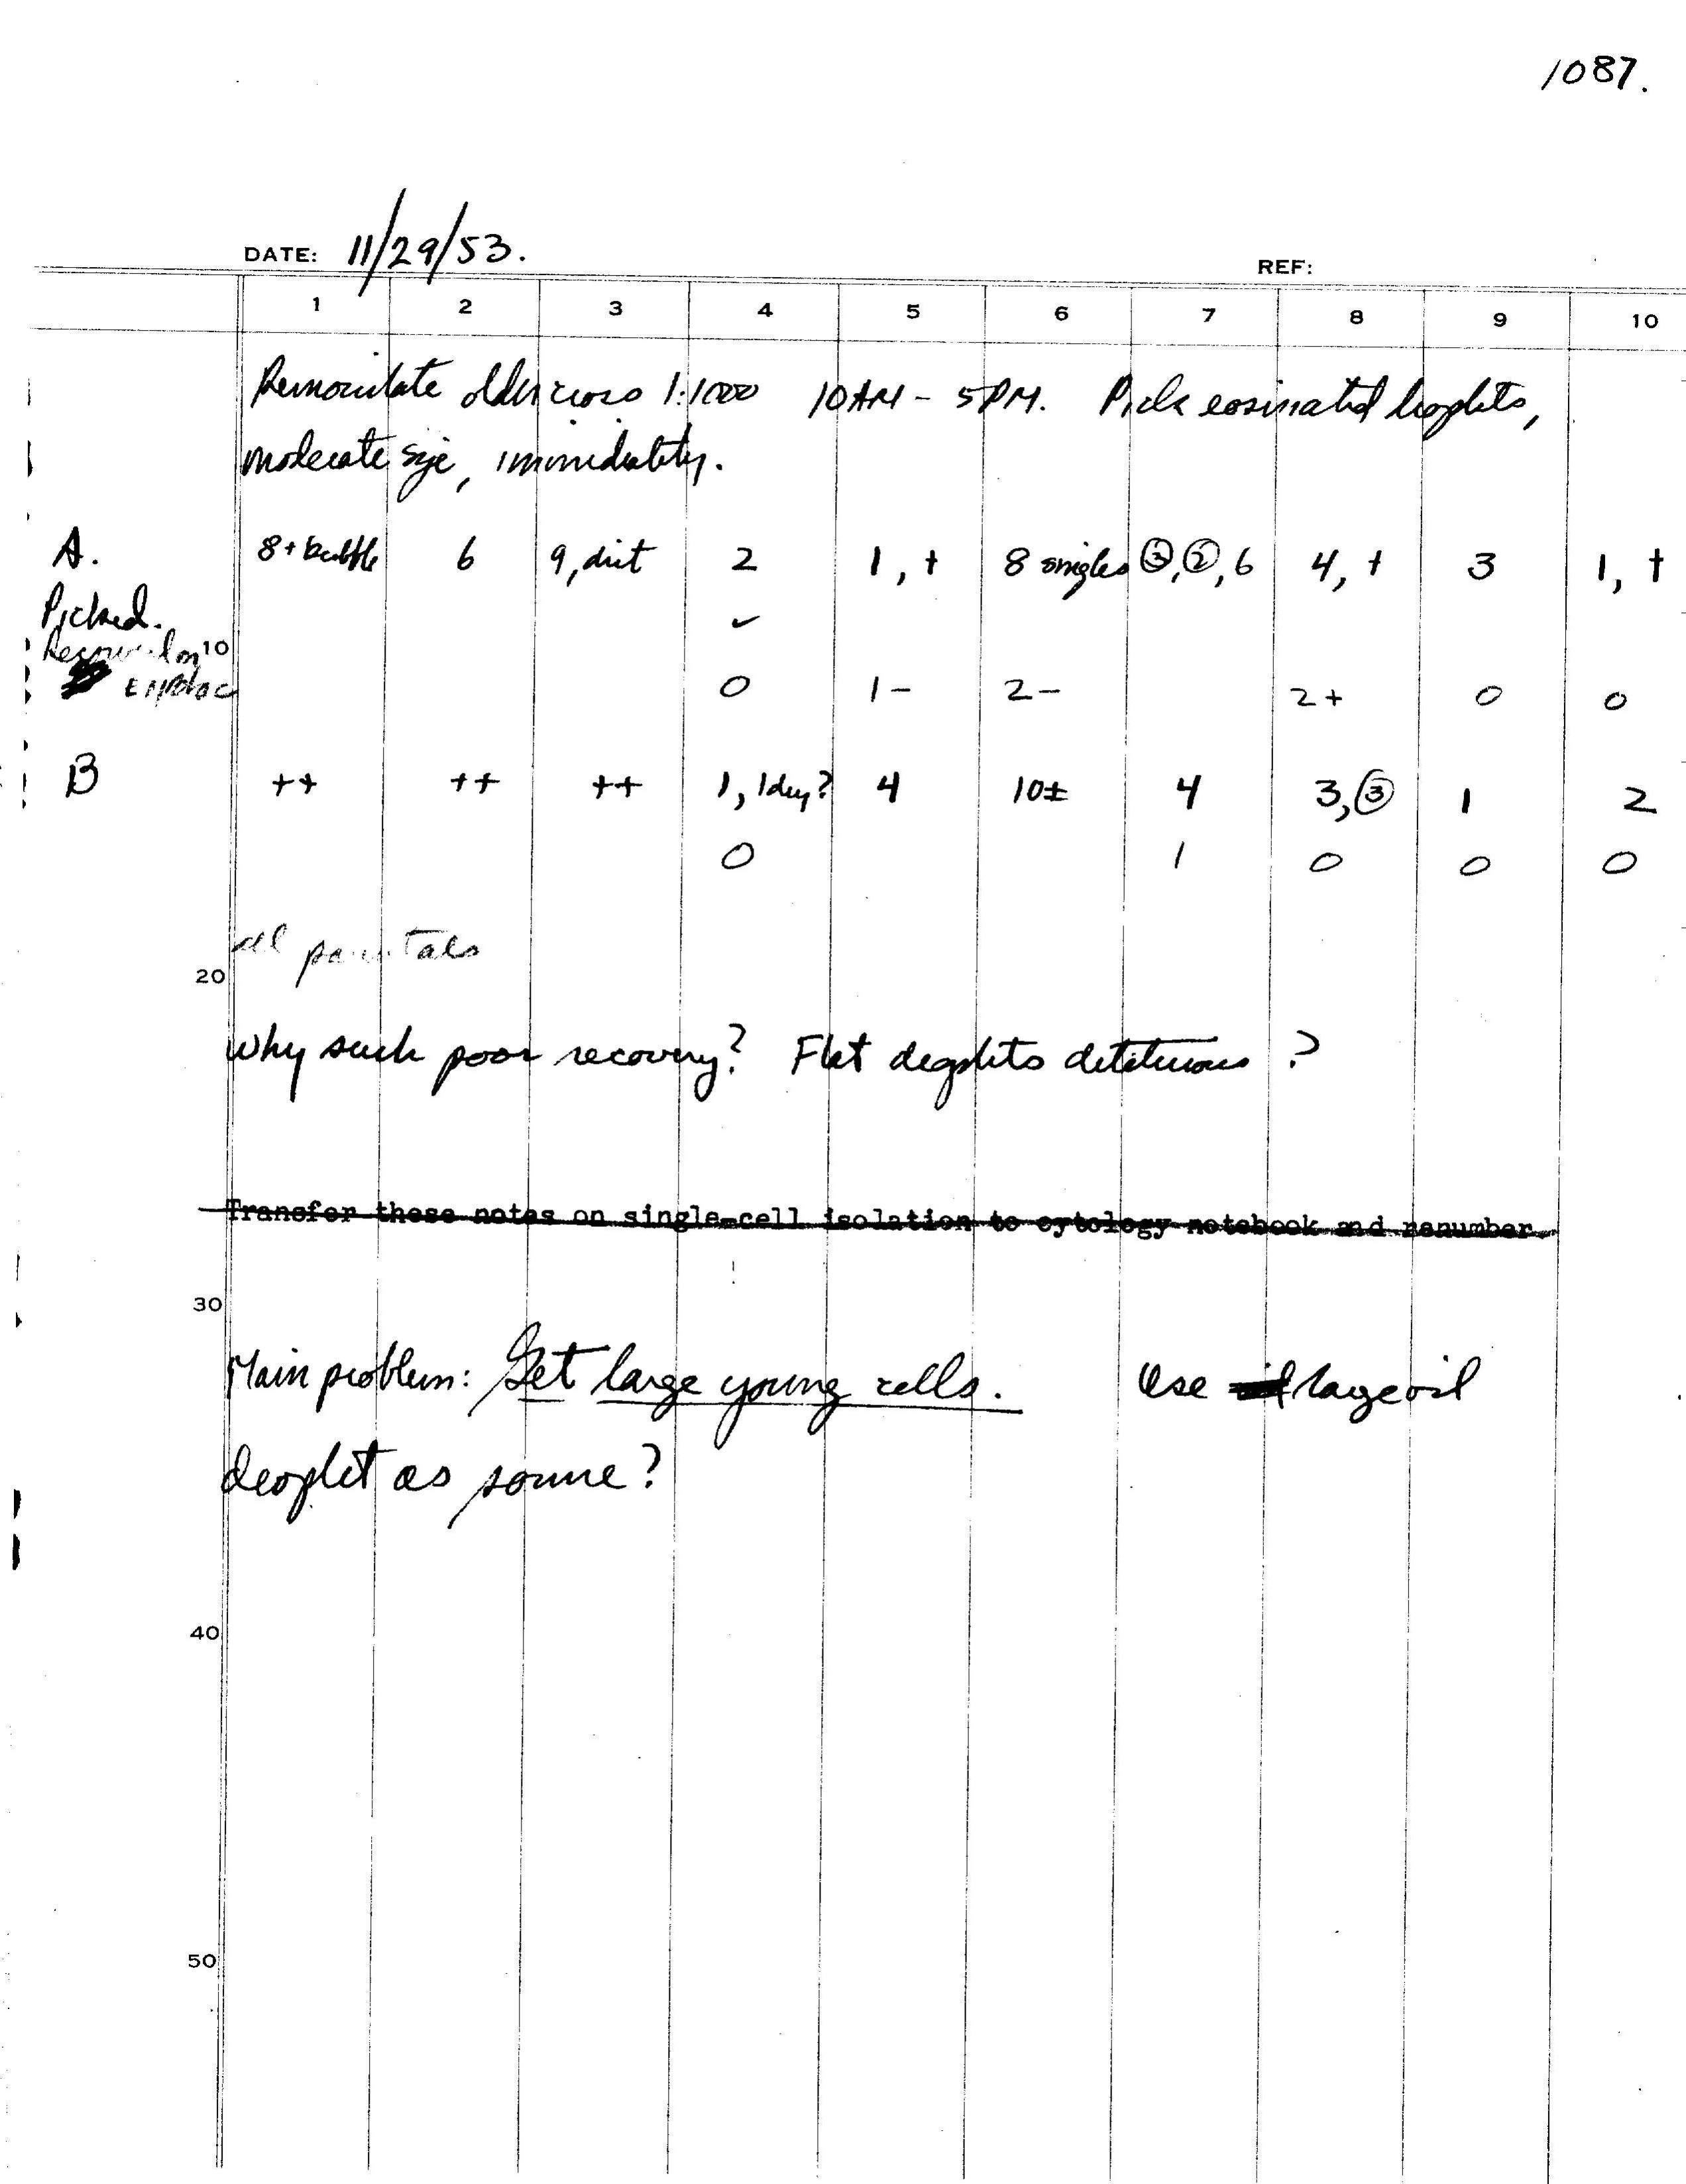 1087.
DATE: 11/29/53.
REF:
1 2 3 4 5 6 7 8 9 10
Reinoculate older cross 1:1000 10AM - 5PM. Pick eosinated droplets,
moderate size, immediately.
A. 8 + bubble 6 9, dirt 2 1, + 8 singles ③, ②, 6 4, + 3 1, +
Picked. ✓
10
EMBlac 0 1- 2- 2+ 0 0
B ++ ++ ++ 1, 1 dry? 4 10± 4 3, ③ 1 2
0 1 0 0 0
all parentals
20
Why such poor recovery? Flat droplets deleterious ?
Transfer these notes on single-cell isolation to cytology notebook and renumber.
30
Main problem: Get large young cells. Use large oil
droplet as source?
40
50